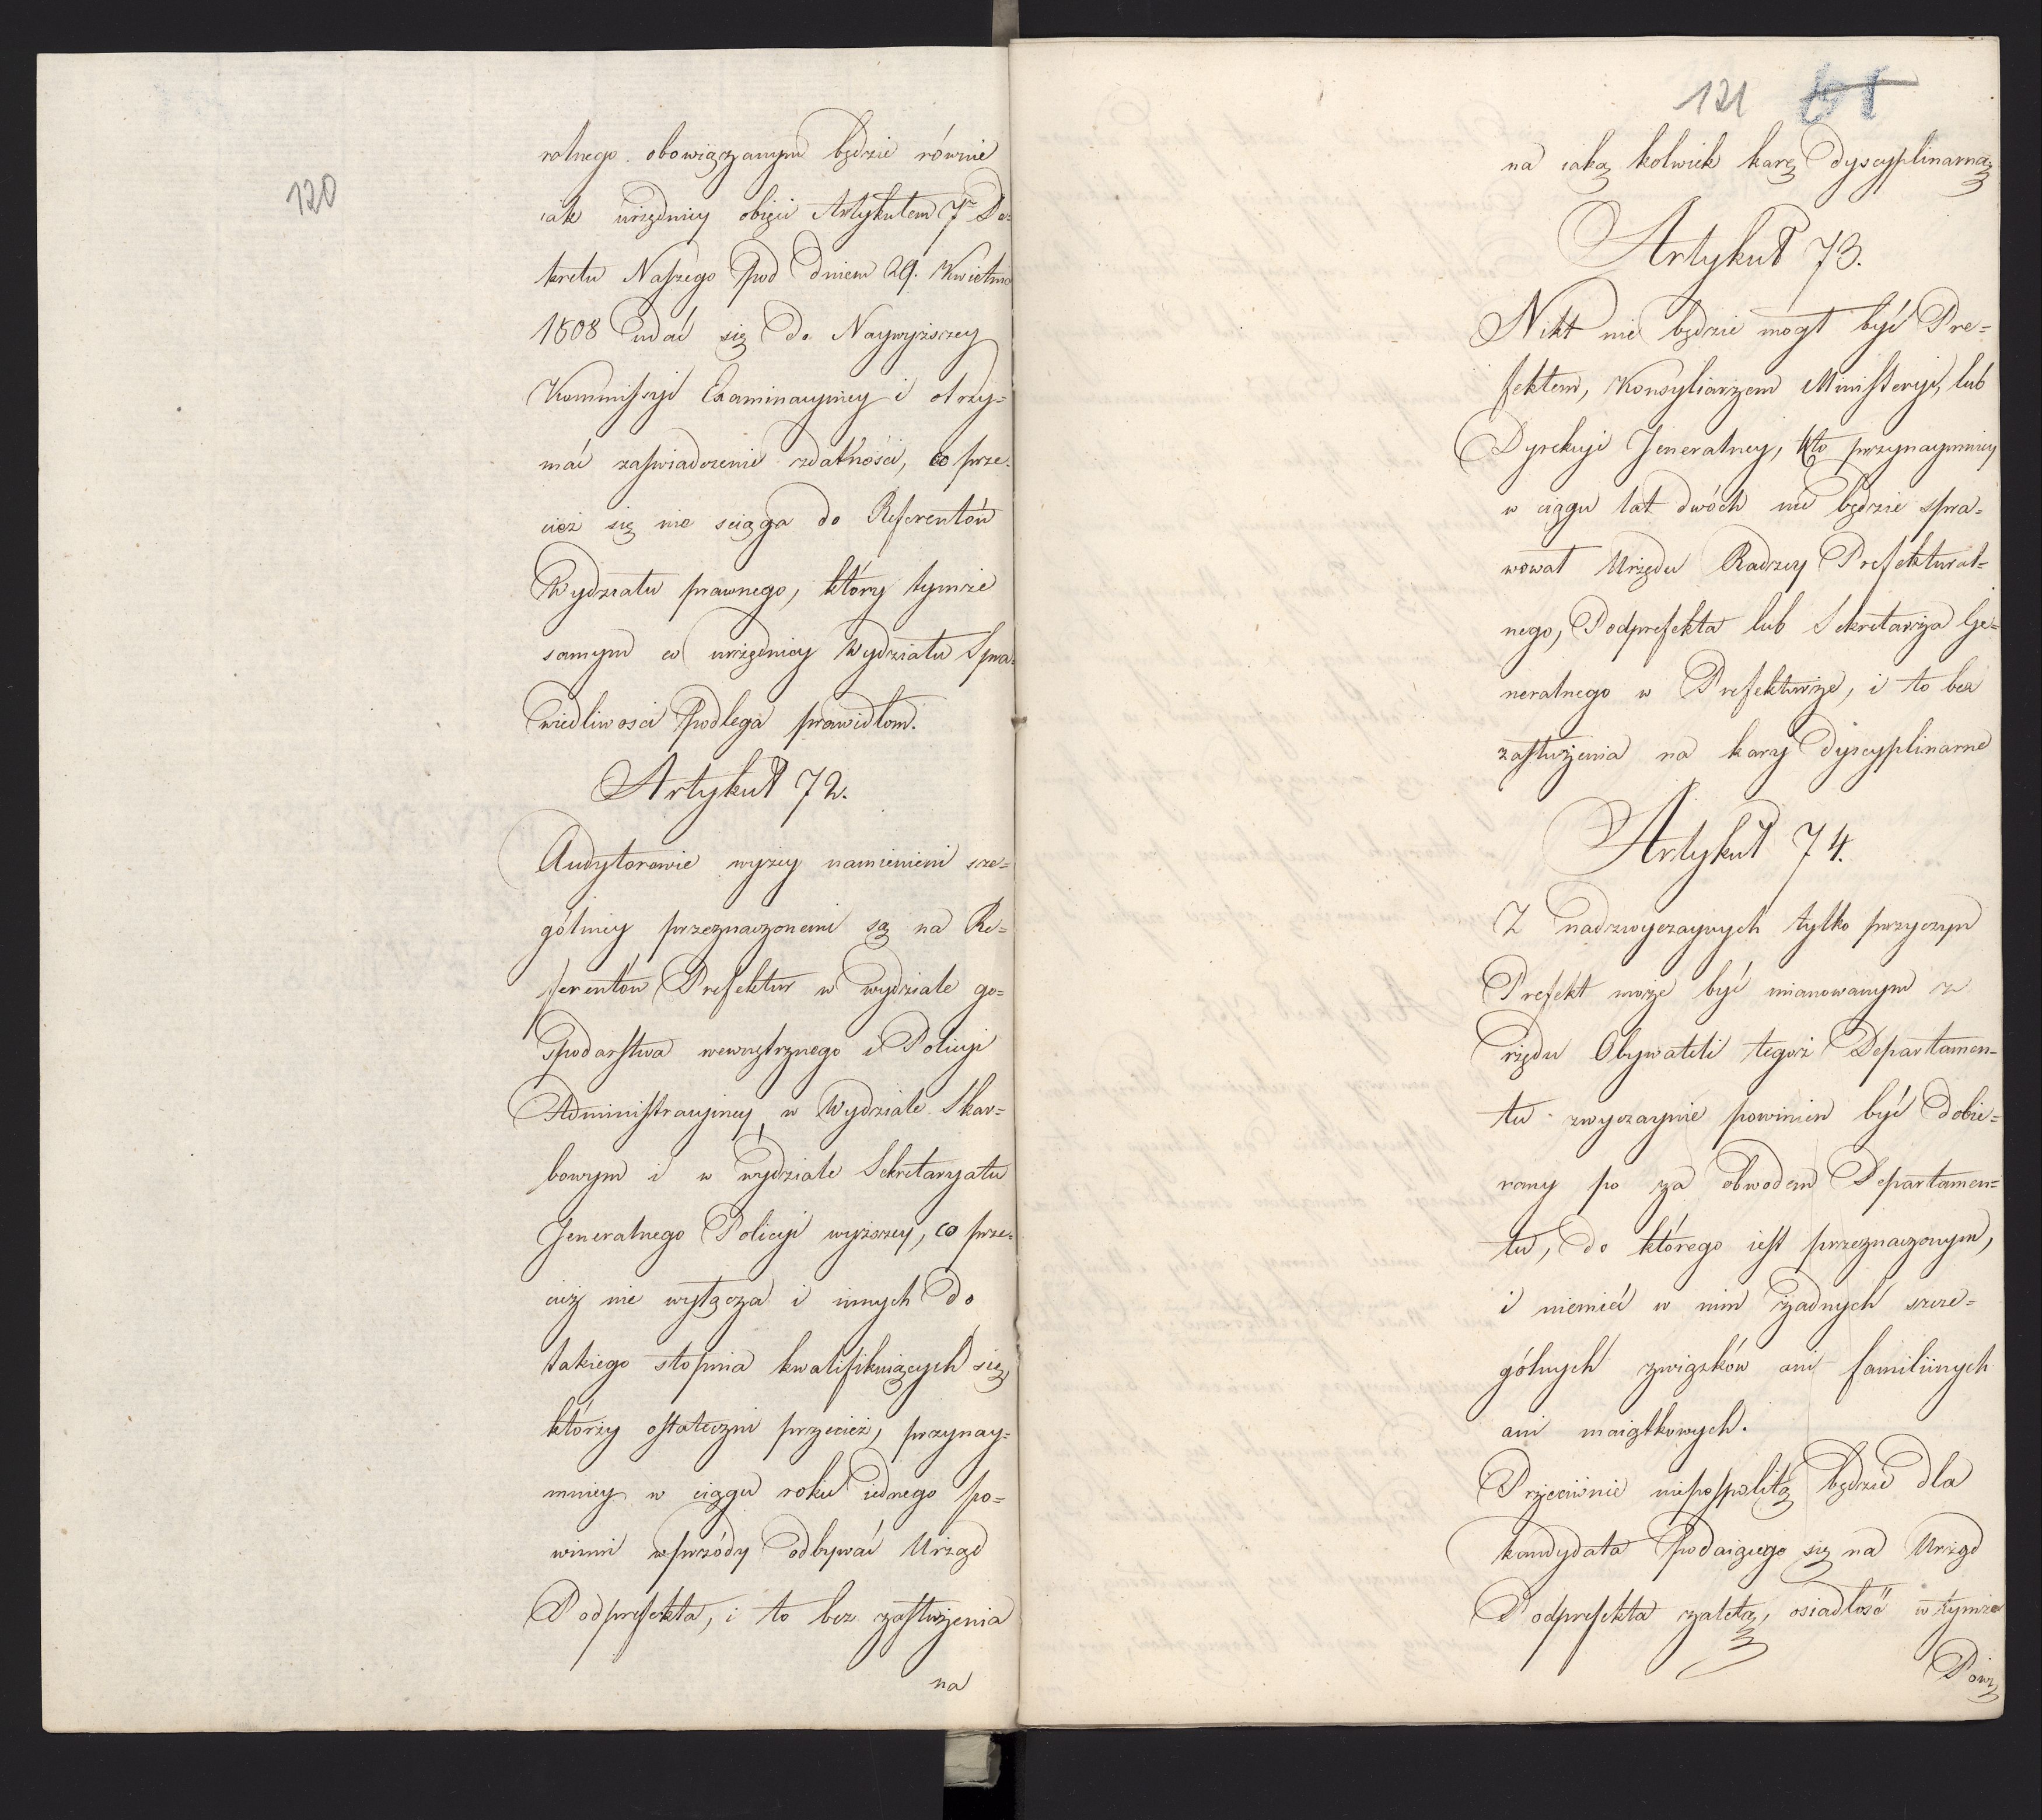 120
ralnego obowiązanym będzie równie
iak urzędnicy obięci Artykułem 7m De=
kretu Naszego pod dniem 29. Kwietnia
1808 udać się do Naywyższey
Kommissyi Examinacyiney i otrzy=
mać zaswiadczenie zdatności, co prze=
cież się nie sciąga do Referentów
Wydziału prawnego, który tymże
samym co urzędnicy Wydziału Spra=
wiedliwosci podlega prawidłom.
Artykuł 72.
Audytorowie wyżey namienieni szc=
gólniey przeznaczonemi są na Re=
ferentów Prefektur w wydziale go=
spodarstwa wewnętrznego i Policyi
Administracyiney, w Wydziale Skar=
bowym i w wydziale Sekretaryatu
Jeneralnego Policyi wyższey, co prze=
cięż nie wyłącza i innych do
takiego stopnia kwalifikuiących się,
którzy ostateczni przecież, przynay=
mniey w ciągu roku iednego po=
winni wprzódy odbywać Urząd
Podprefekta, i to bez zasłużenia
na
121
na iaką kolwiek karę dyscyplinarną
Artykuł 73.
Nikt nie będzie mógł być Pre=
fektem, Konsyliarzem Ministeryi, lub
Dyrekcyi Jeneralney, kto przynaymniey
w ciągu lat dwóch nie będzie spra=
wował Urzędu Radzcy Prefektural=
nego, Podprefekta lub Sekretarza Ge=
neralnego w Prefekturze, i to bez
zasłużenia na kary dyscyplinarne
Artykuł 74.
Z nadzwyczaynych tylko przyczyn
Prefekt może być mianowanym z
rzędu Obywateli tegoż Departamen=
tu zwyczaynie powinien być dobie=
rany po za obwodem Departamen=
tu, do którego iest przeznaczonym,
i niemieć w nim żadnych szcze=
gólnych związków ani familiinych
ani maiątkowych.
Przeciwnie niepospolitą będzie dla
kandydata podaiącego się na Urząd
Podprefekta zaletą, osiadłość w tymże
Powie